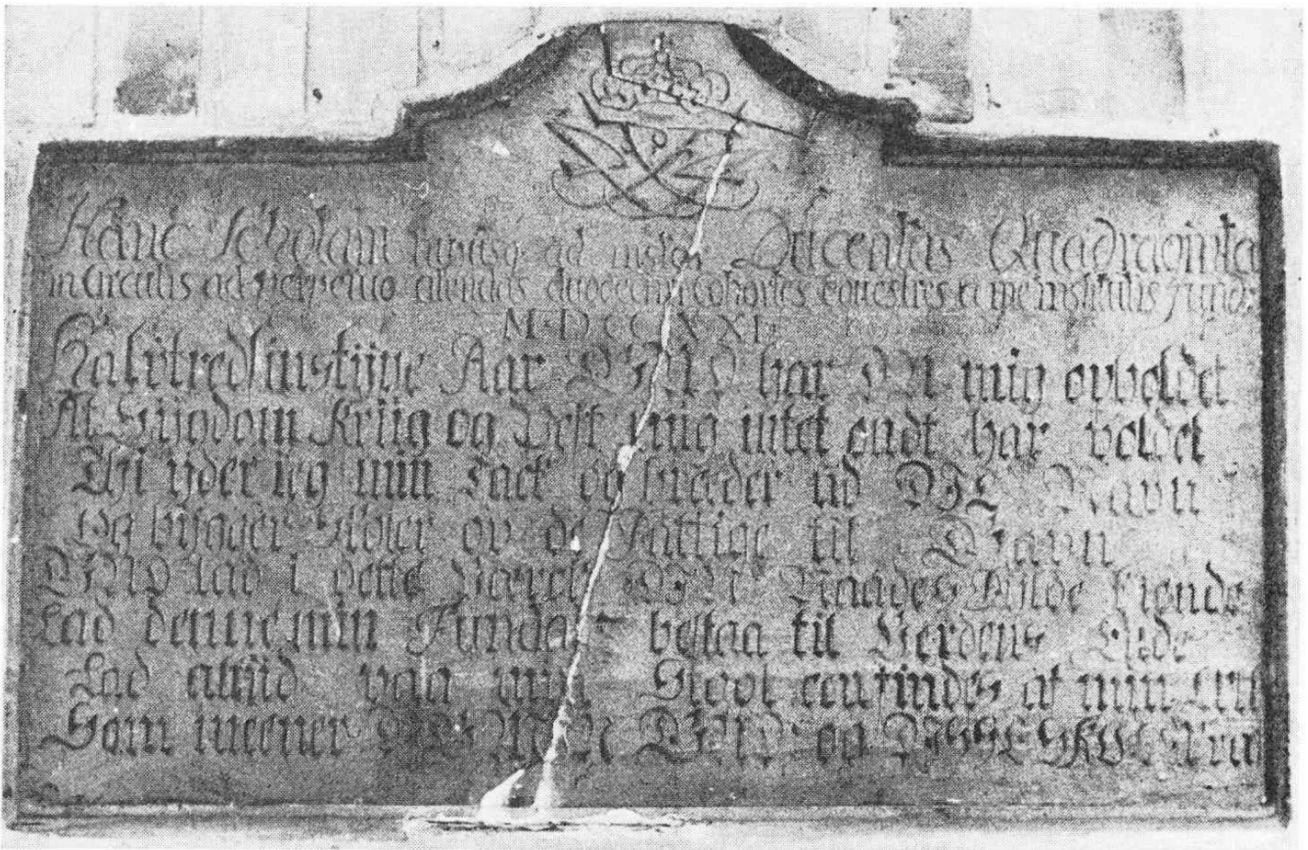 Hanc Scholam ad instar Ducentas Quadraginta
in Circulis ad perpetuo alendas duodecim cohortes equestres a me institutis
M D C C X X I
Halvtredsinstÿve Aar GUD har DU mig opholdet
At Sÿgdom Kriig og Pest mig intet ondt har voldet
Thi ÿder ieg min Tack og breeder ud DIT Navn
Og bÿgger Skoler op de Fattige til Gavn
GUD lad i dette Verck DIN Naades Fÿlde kiende
Lad denne min bestaa til Verdens Ende
Lad altiid paa min Stool een findes af min
Som meener MIN GUD og DISSE SKOLERS